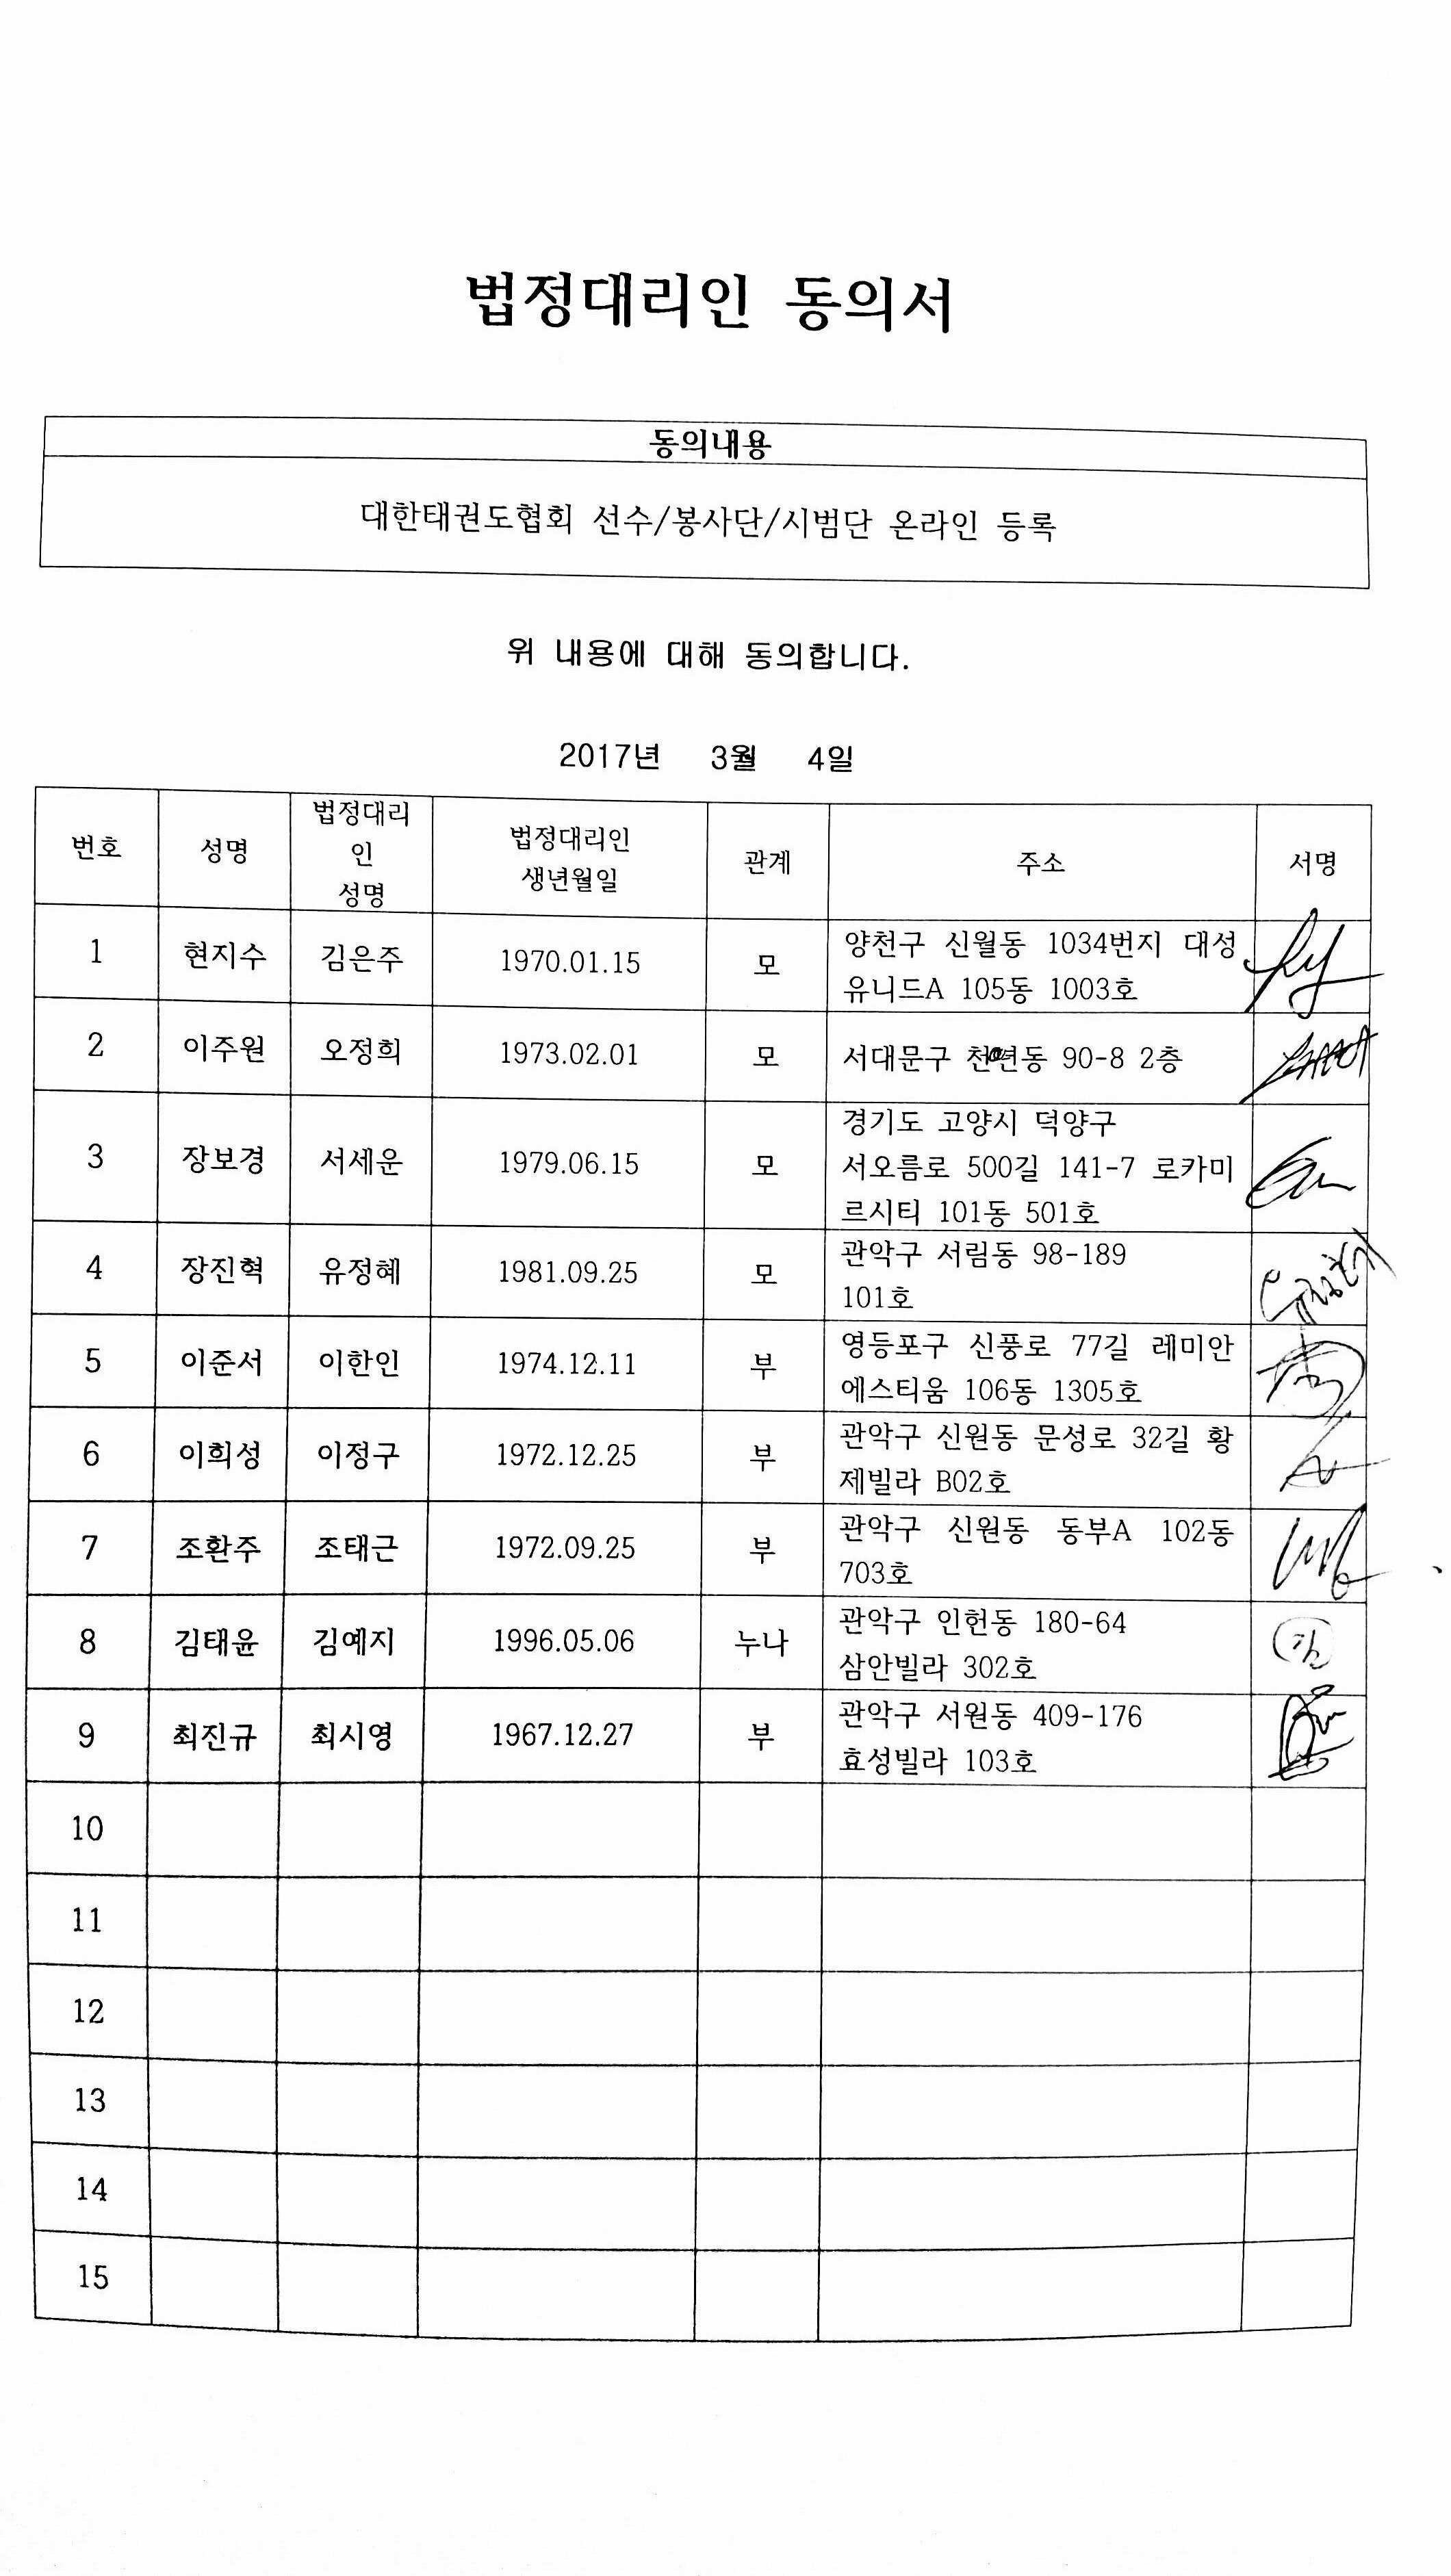 법정대리인 동의서
동의내용
대한태권도협회 선수/봉사단/시범단 온라인 등록
위 내용에 대해 동의합니다.
2017년 3월 4일
번호 성명 법정대리인 성명 법정대리인 생년월일 관계 주소 서명
1 현지수 김은주 1970.01.15 모 양천구 신월동 1034번지 대성
유니드A 105동 1003호
2 이주원 오정희 1973.02.01 모 서대문구 천연동 90-8 2층
3 장보경 서세운 1979.06.15 모 경기도 고양시 덕양구
서오름로 500길 141-7 로카미
르시티 101동 501호
4 장진혁 유정혜 1981.09.25 모 관악구 서림동 98-189
101호
5 이준서 이한인 1974.12.11 부 영등포구 신풍로 77길 레미안
에스티움 106동 1305호
6 이희성 이정구 1972.12.25 부 관악구 신원동 문성로 32길 황
제빌라 B02호
7 조환주 조태근 1972.09.25 부 관악구 신원동 동부A 102동
703호
8 김태윤 김예지 1996.05.06 누나 관악구 인헌동 180-64
삼안빌라 302호
9 최진규 최시영 1967.12.27 부 관악구 서원동 409-176
효성빌라 103호
10
11
12
13
14
15